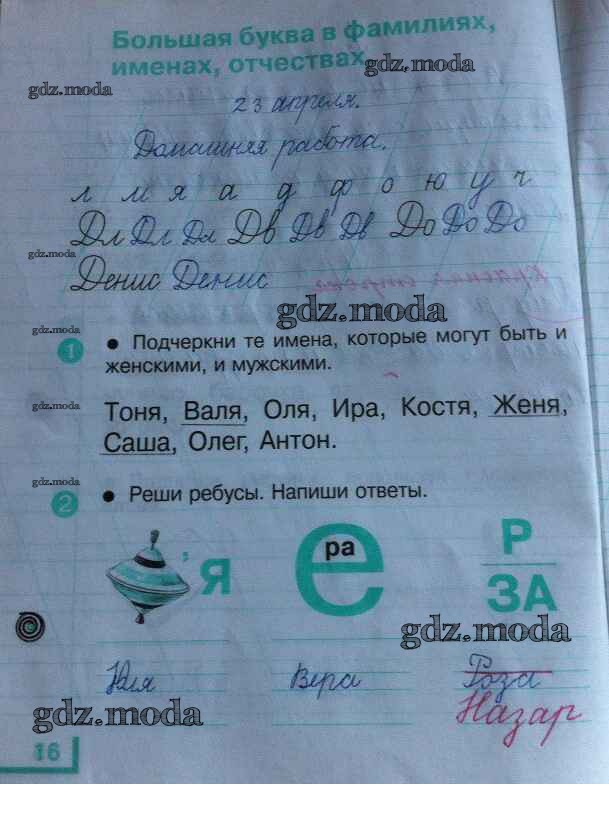 Большая буква в фамилиях,
именах, отчествах
gdz.moda
gdz.moda
23 апреля.
Домашняя работа.
л м я а д ф о ю у ч
Дл Дл Дл Дв Дв Дв До До До
gdz.moda
Денис Денис
gdz.moda
gdz.moda
1 • Подчеркни те имена, которые могут быть и
женскими, и мужскими.
gdz.moda
Тоня, Валя, Оля, Ира, Костя, Женя,
Саша, Олег, Антон.
gdz.moda
2 • Реши ребусы. Напиши ответы.
’Я
е
ра
Р
ЗА
gdz.moda
Юля Вера Роза
Назар
gdz.moda
16